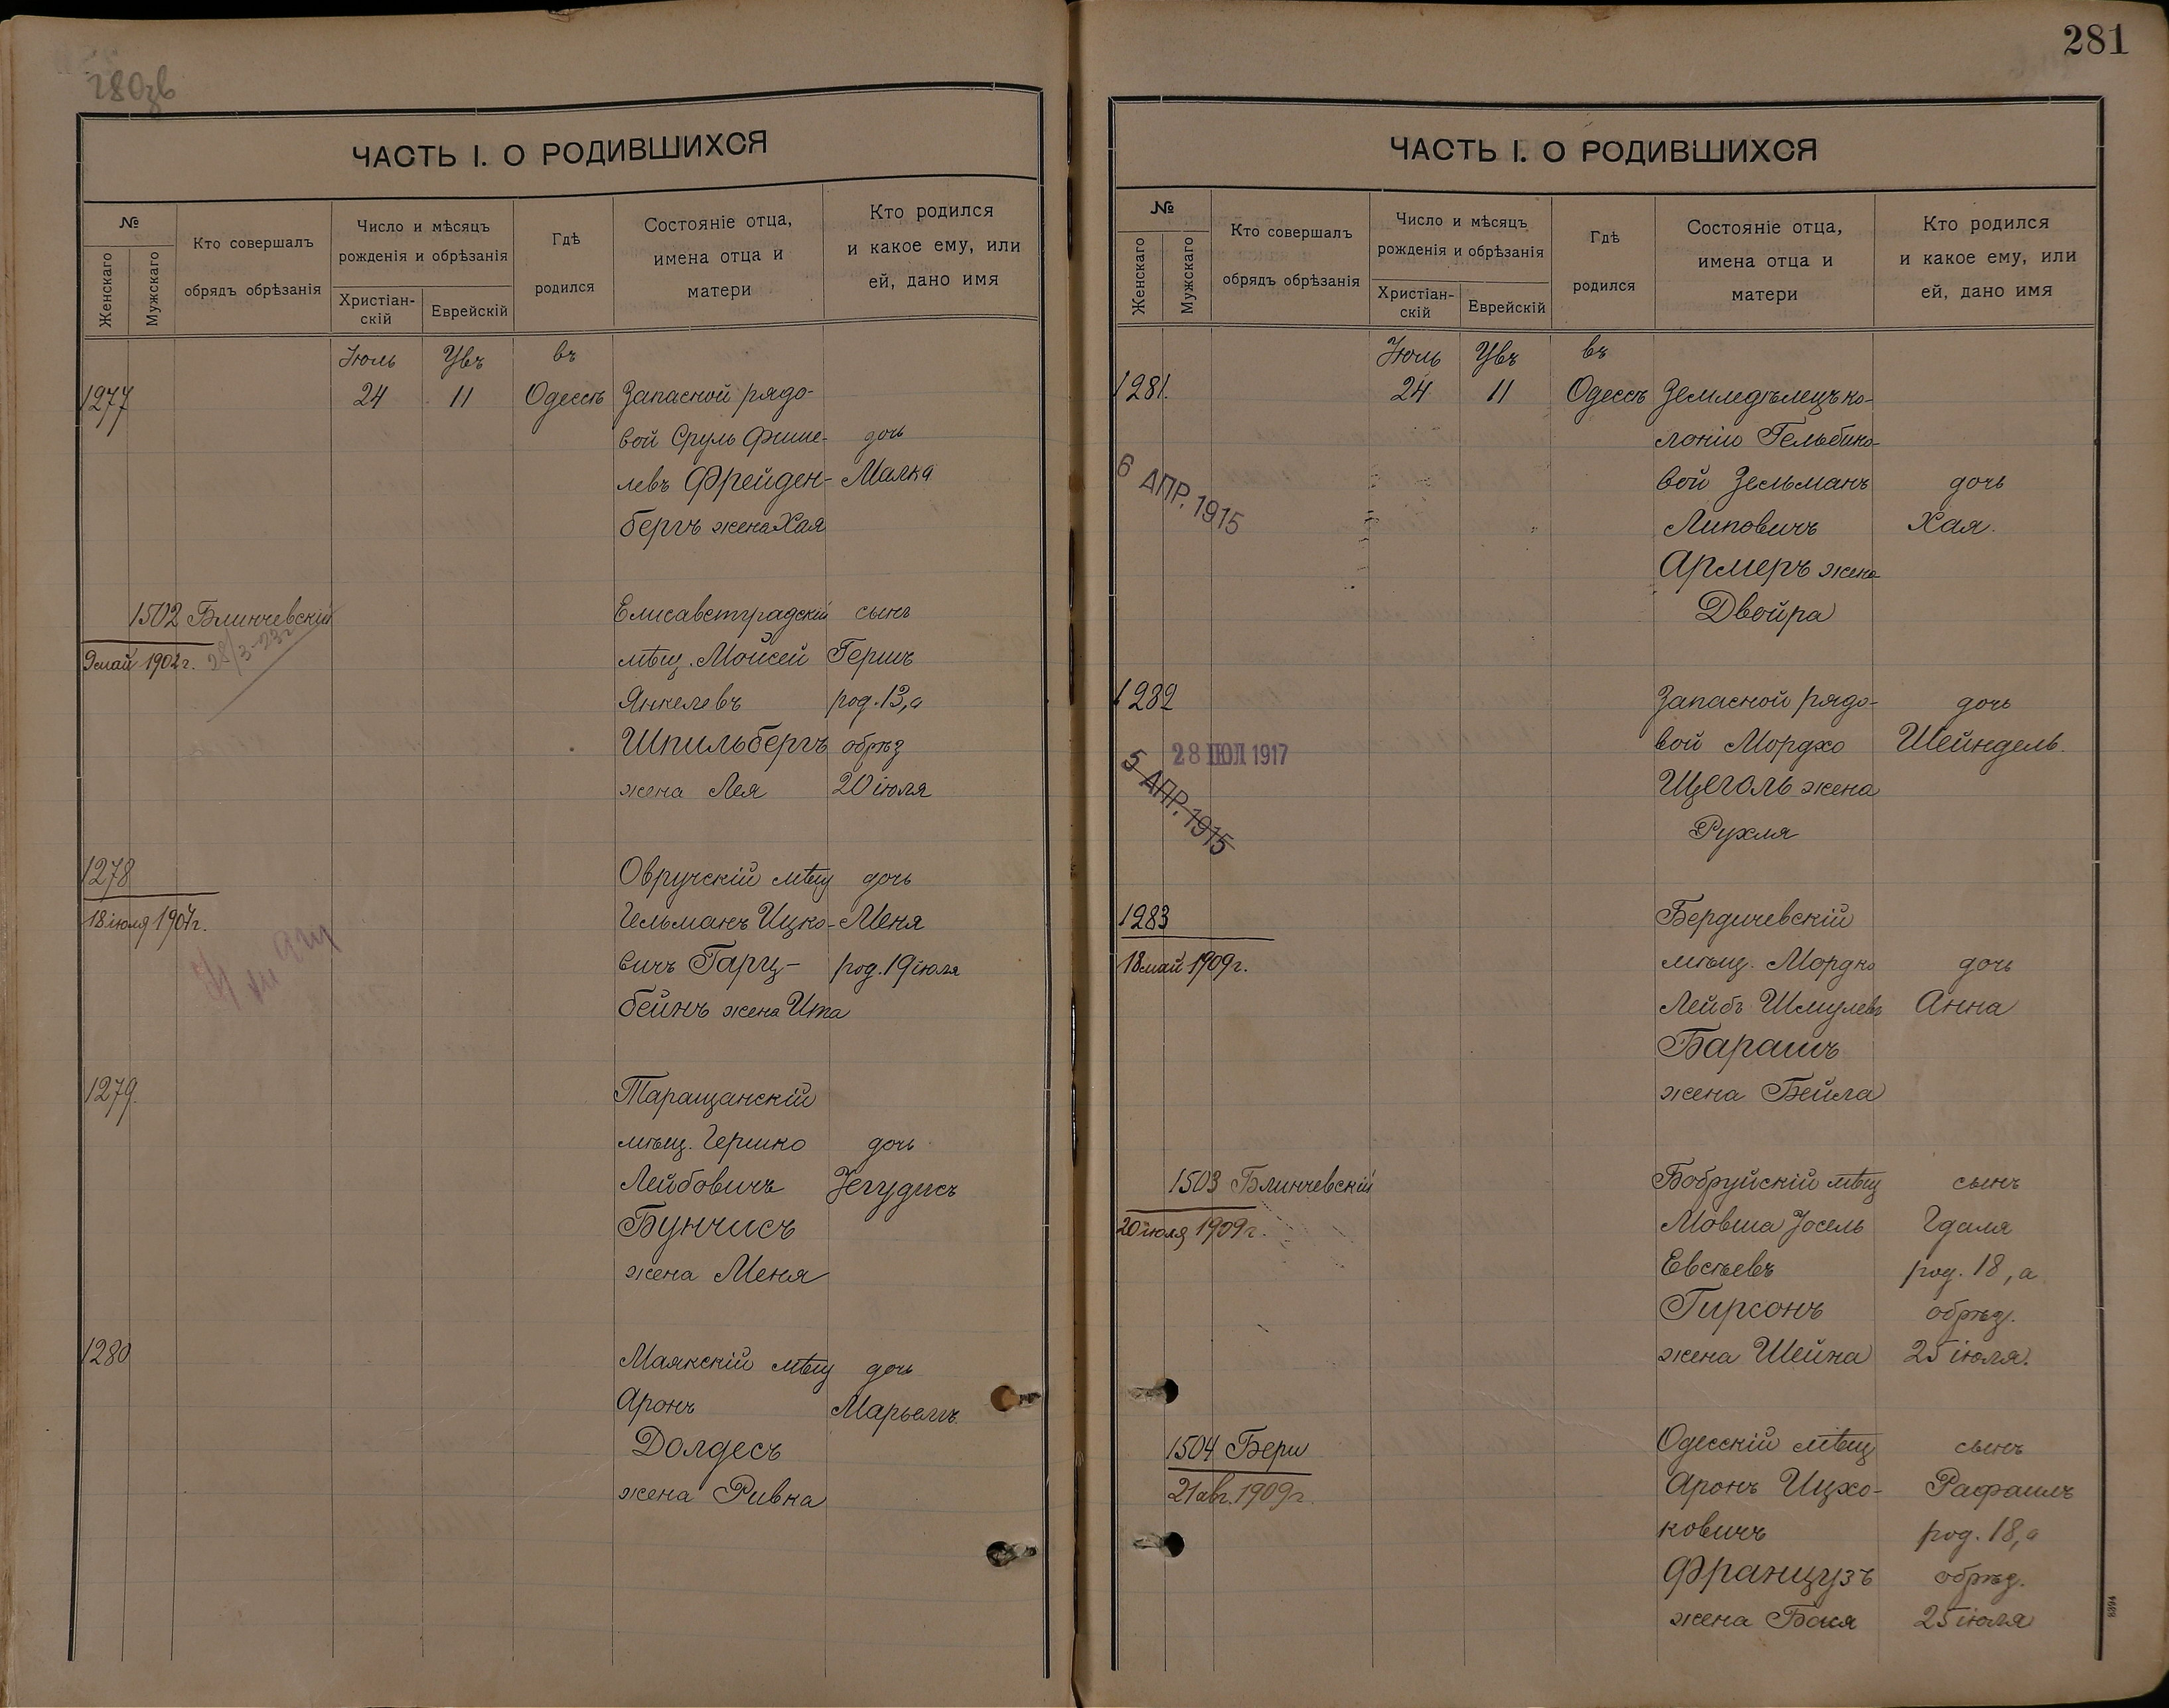 280зв
ЧАСТЬ I. О РОДИВШИХСЯ
№
Женскаго
Мужскаго
Кто совершалъ
обрядъ обрѣзанія
Число и мѣсяцъ
рожденія и обрѣзанія
Христіан-
скій
Еврейскій
Гдѣ
родился
Состояніе отца,
имена отца и
матери
Кто родился
и какое ему, или
ей, дано имя
Іюль Увъ въ
1277 24 11 Одессѣ Запасной рядо-
вой Сруль Фише- дочь
левъ Фрейден- Малка
бергъ жена Хая
1502 Блинчевскій Елисаветградскій сынъ
9 май 1902 г. 28/3-23 г. мѣщ. Мойсей Гершъ
Янкелевъ род. 13, а
Шпильбергъ обрѣз
жена Лея 20 іюля
1278 Овручскій мѣщ дочь
18 іюля 1907 г. Гельманъ Ицко- Меня
вичъ Гарц- род. 19 іюля
бейнъ жена Ита
1279 Таращанскій
мѣщ. Гершко дочь
Лейбовичъ Іегудисъ
Бунчисъ
жена Меня
1280 Маякскій мѣщ дочь
Аронъ Марьемъ
Долдесъ
жена Ривка
281
ЧАСТЬ I. О РОДИВШИХСЯ
№
Женскаго
Мужскаго
Кто совершалъ
обрядъ обрѣзанія
Число и мѣсяцъ
рожденія и обрѣзанія
Христіан-
скій
Еврейскій
Гдѣ
родился
Состояніе отца,
имена отца и
матери
Кто родился
и какое ему, или
ей, дано имя
Іюль Увъ въ
1281. 24 11 Одессѣ Земледѣлецъ ко-
лоніи Гельбино-
6 АПР. 1915
вой Зельманъ дочь
Липовичъ Хая.
Армеръ жена
Двойра
1282 Запасной рядо- дочь
28 ІЮЛ 1917
вой Мордхо Шейндель.
5 АПР. 1915
Щеголь жена
Рухля
1283 Бердичевскій
18 май 1909 г. мѣщ. Мордко дочь
Лейбъ Шмулевъ Анна
Барашъ
жена Бейла
1503 Блинчевскій Бобруйскій мѣщ сынъ
20 іюля 1909 г. Мовша Іосель Гдаля
Евсѣевъ род. 18, а
Гирсонъ обрѣз.
жена Шейна 25 іюля.
1504 Бери Одесскій мѣщ сынъ
21 авг. 1909 г. Аронъ Ицхо- Рафаилъ
ковичъ род. 18, а
Французъ обрѣз.
жена Бася 25 іюля
8394